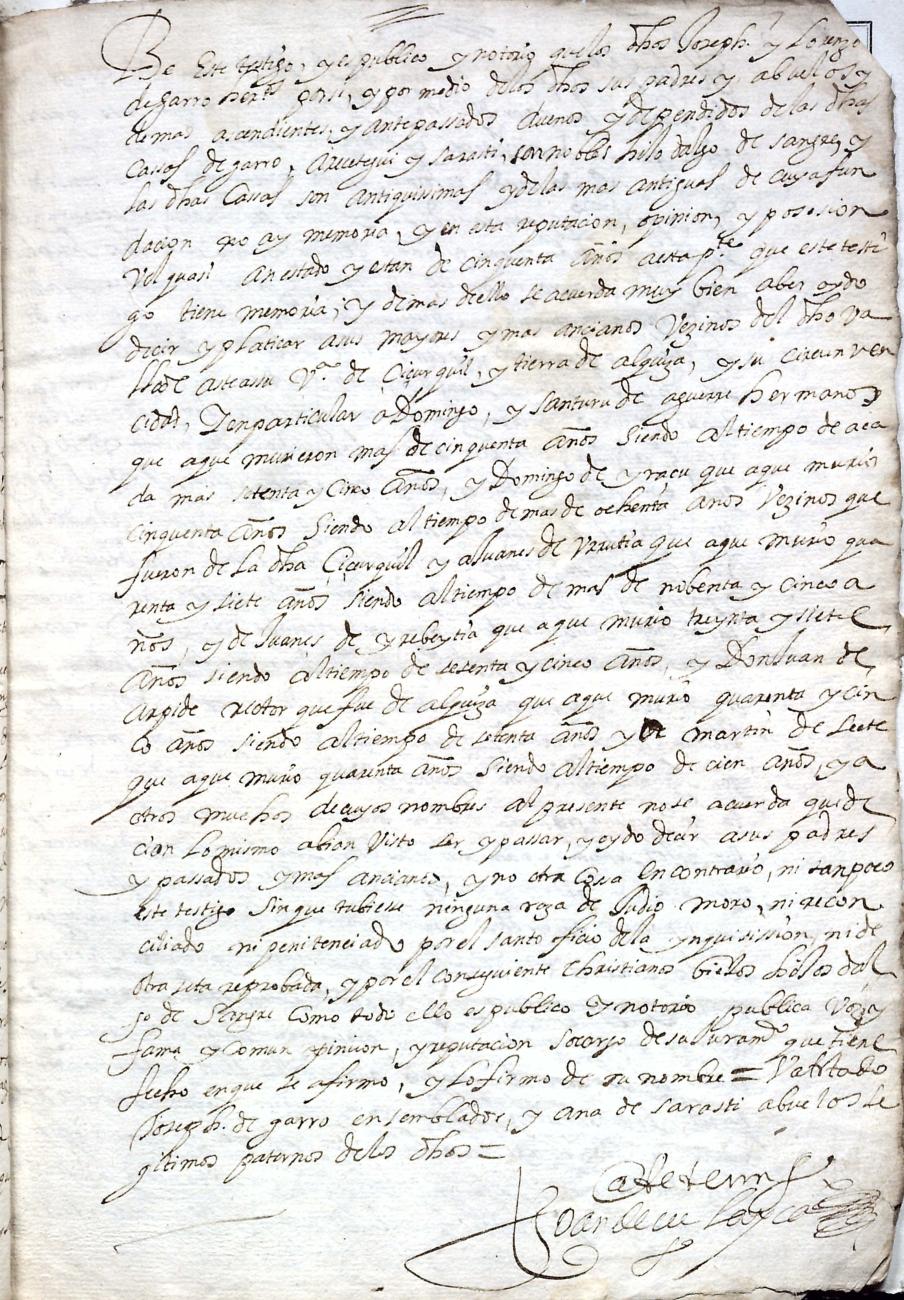 Be este testigo, y es publico y notorio que los dhos Joseph y Lorenzo
de garro herˢ por si, y por medio de los dhos sus padres y abuelos y
demas acendientes, y antepassados duenos y dependidos de las dhas
Casas de garro, Arcategui y sarasti, son nobles hijo dalgo de sangre, y
las dhas Casas son antiquissimas y de las mas antiguas de cuya fun
dacion no ay memoria, y en esta reputacion, opinion, y posesion
Vel quasi an estado y estan de cinquenta años aesta pᵗᵉ que este testi
go tiene memoria, y demas dello se acuerda muy bien aber oydo
decir y platicar asus mayores y mas ancianos Vezinos del dho Va
lle de asteasu Vᵃ de Ciçurquil, y tierra de alquiza, y su circunven
cidad, Y enparticular a Domingo, y Santuru de aguerre hermanos
que aque murieron mas de cinquenta años siendo al tiempo de aca
da mas setenta y Cinco años, y Domingo de yracu que aque murio
cinquenta años siendo al tiempo demas de ochenta anos Vezinos que
fueron de la dha Ciçurquil y a Juanes de Vrrutia que aque murio qua
renta y siete años siendo al tiempo de mas de nobenta y cinco a
ños, y de Juanes de yrebeytia que aque murio treynta y siete
años siendo al tiempo de setenta y cinco años, y Don Juan de
arpide rector que fue de alquiza que aque murio quarenta y cin
co años siendo al tiempo de setenta años y de martin de Leete
que aque murio quarenta años siendo al tiempo de cien años, y a
otros muchos de cuyos nombres al presente no se acuerda que de
cian lo mismo abian Visto ser y passar, y oydo decir asus padres
y passados y mas ancianos, y no otra Cosa en contrario, ni tanpoco
este testigo sin que tubiese ninguna raza de Judio moro, ni recon
ciliado ni penitenciado por el santo oficio dela ynquisission, ni de
otra seta reprobada, y por el consiguiente Christianos biejos hijos dal
go de Sangre Como todo ello es publico y notorio publica Voz y
fama y Comun opinion, y reputacion so cargo de su Juramᵗᵒ que tiene
fecho en que se afirmo, y lo firmo de su nombre = Va testado
Joseph de garro ensemblador, y ana de sarasti abuelos le
gitimos paternos de los dhos =